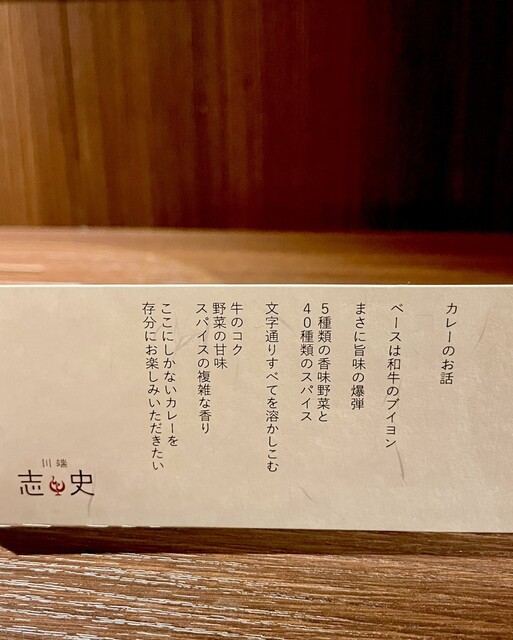 カレーのお話
ベースは和牛のブイヨン
まさに旨味の爆弾
5種類の香味野菜と
40種類のスパイス
文字通りすべてを溶かしこむ
牛のコク
野菜の甘味
スパイスの複雑な香り
ここにしかないカレーを
存分にお楽しみいただきたい
川端
志史